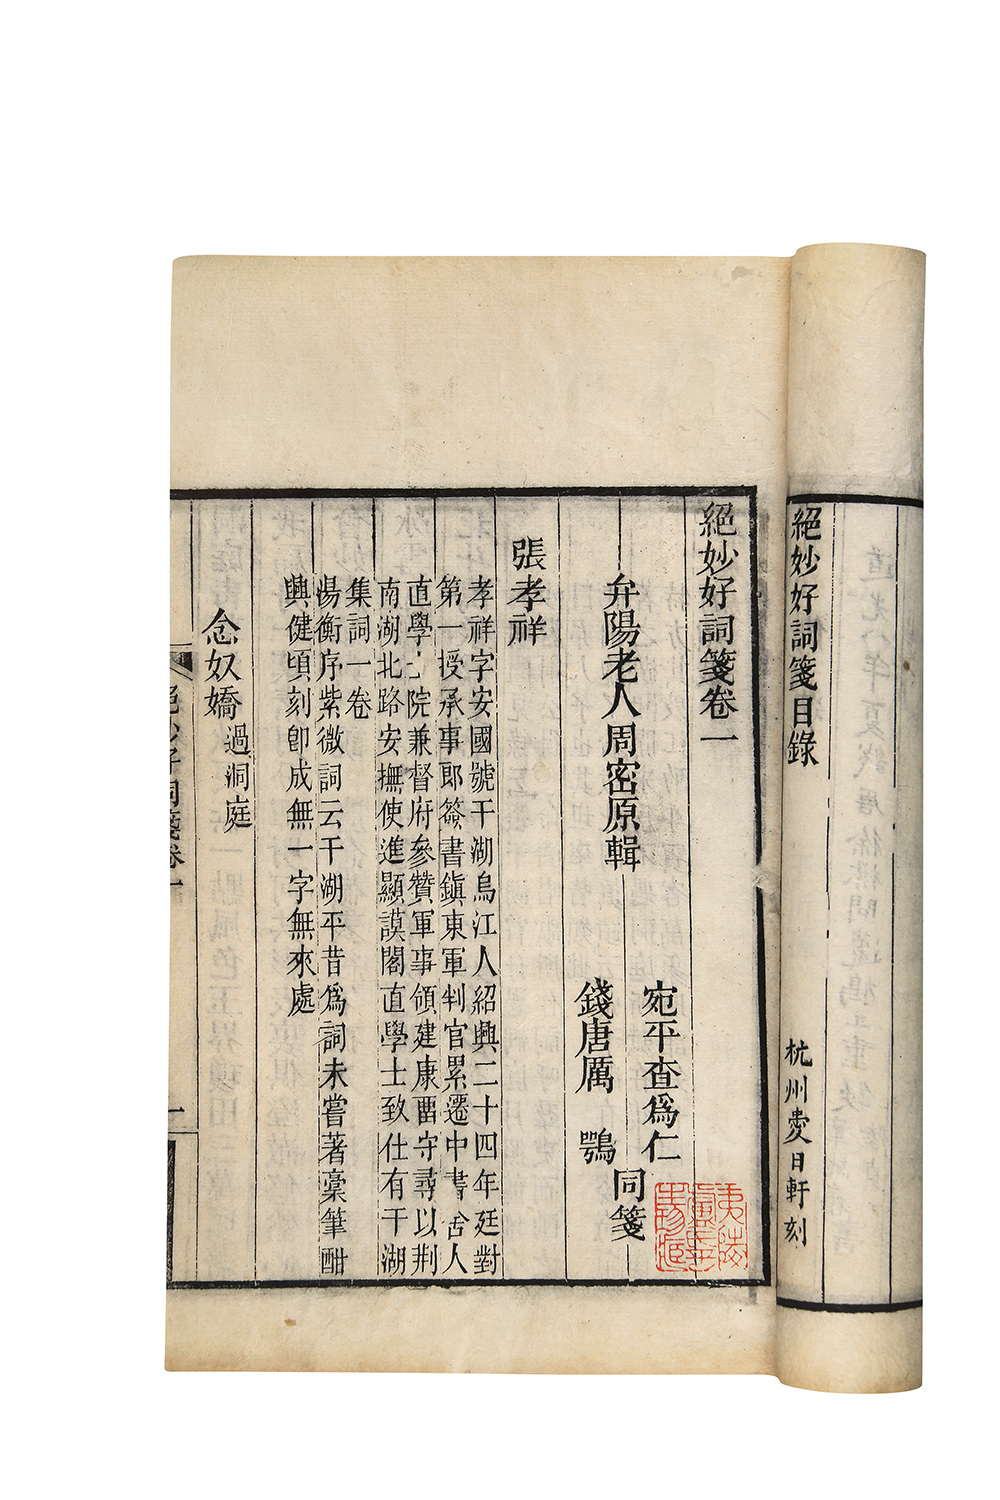 絕妙好詞箋目錄
杭州愛日軒刻
絕妙好詞箋卷一
弁陽老人周密原輯
宛平查爲仁
錢唐厲鶚
同箋
張孝祥
孝祥字安國號干湖烏江人紹興二十四年廷對
第一授承事郎簽書鎭東軍判官累遷中書舍人
直學士院兼督府參贊軍事領建康畱守尋以荆
南湖北路安撫使進顯謨閣直學士致仕有干湖
集詞一卷
湯衡序紫微詞云干湖平昔爲詞未嘗著稾筆酣
興健頃刻卽成無一字無來處
念奴嬌 過洞庭
絕妙好詞箋卷一
一